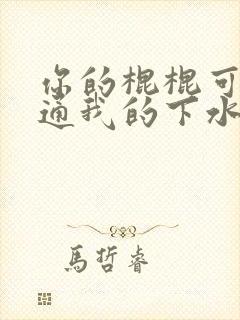 你的棍棍可
通我的下水
馬哲睿